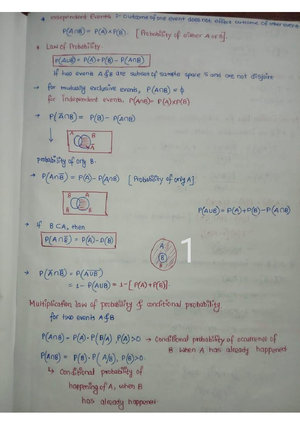 * Independent Events :- Outcome of one event does not affect outcome of other event
P(A∩B) = P(A)×P(B). [Probability of either A or B].
* Law of Probability
P(A∪B) = P(A) + P(B) - P(A∩B)
If two events A & B are subset of sample space S and are not disjoint
→ For mutually exclusive events, P(A∩B) = ϕ
For independent events, P(A∩B) = P(A)×P(B)
→ P(A̅∩B) = P(B) - P(A∩B)
A B
Probability of only B.
→ P(A∩B̅) = P(A) - P(A∩B) [Probability of only A]
A B
P(A∪B) = P(A) + P(B) - P(A∩B)
→ If B⊂A, then
P(A∩B̅) = P(A) - P(B)
A
B
1
→ P(A̅∩B̅) = P(A∪B)
= 1 - P(A∪B) = 1 - [P(A) + P(B)]
Multiplication law of probability & conditional probability
for two events A & B
P(A∩B) = P(A)·P(B/A), P(A)>0 → Conditional probability of occurrence of
B when A has already happened
P(A∩B) = P(B)·P(A/B), P(B)>0
↳ Conditional probability of
happening of A, when B
has already happened